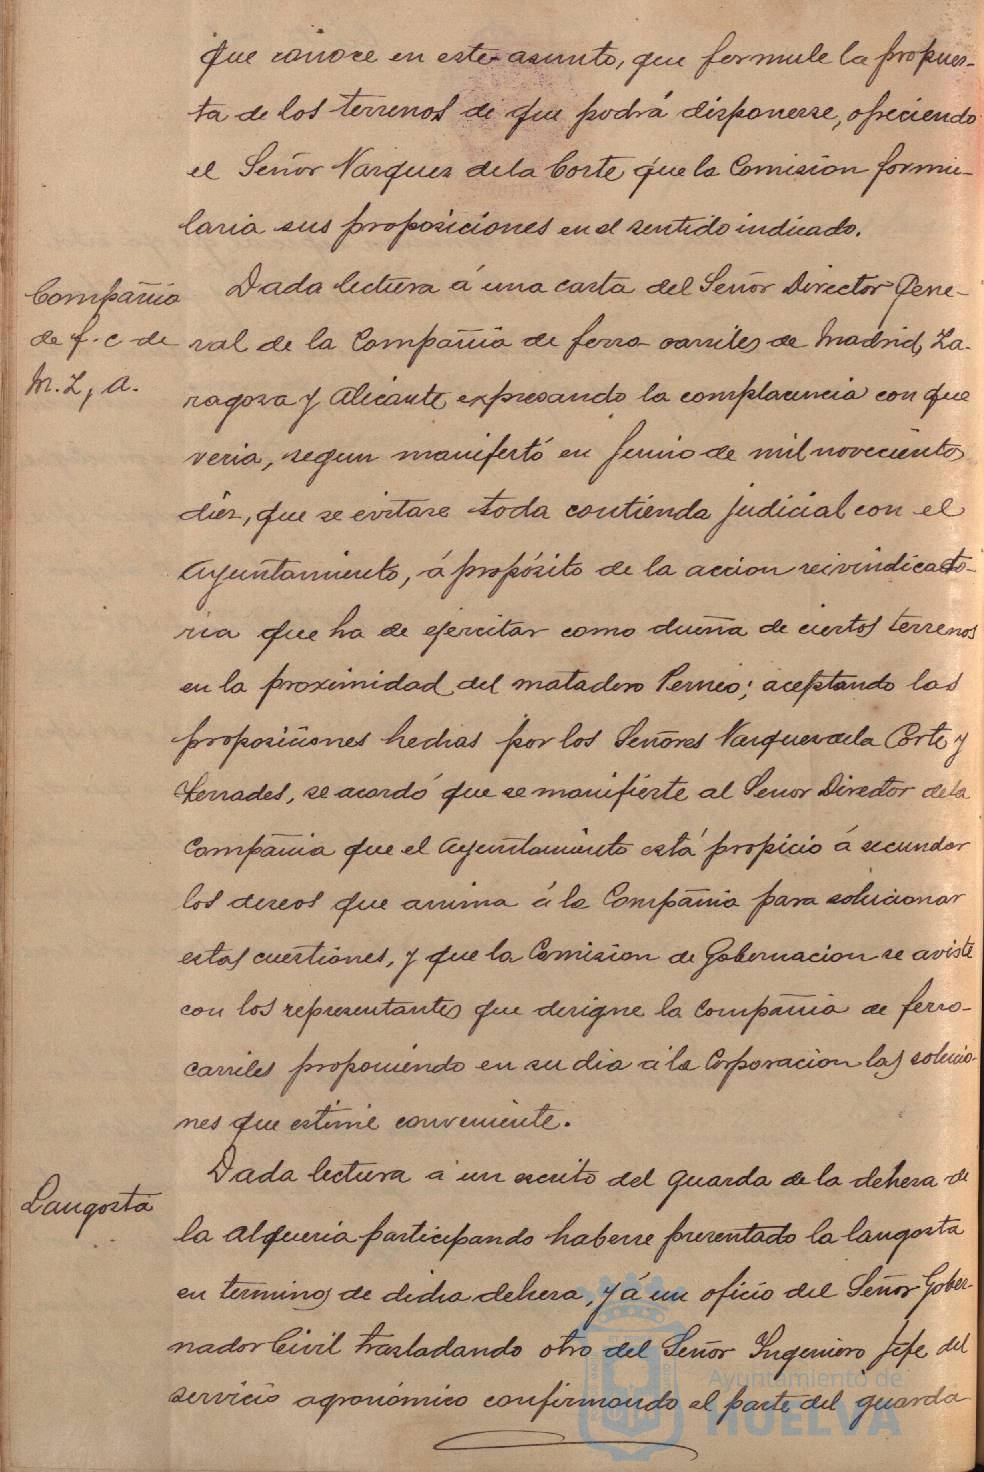 que conoce en este asunto, que formule la propues-
ta de los terrenos de que podrá disponerse, ofreciendo
el Señor Vazquez de la Corte que la Comisión formu-
laria sus proposiciones en el sentido indicado.
Compañia
de f. c. de
M. Z, A.
Dada lectura á una carta del Señor Director Gene-
ral de la Compañia de ferro carriles de Madrid, Za-
ragoza y Alicante, expresando la complacencia con que
veria, segun manifestó en Junio de mil novecientos
diez, que se evitase toda contienda judicial con el
Ayuntamiento, á propósito de la accion reivindicato-
ria que ha de ejercitar como dueña de ciertos terrenos
en la proximidad del matadero Perneo; aceptando las
proposiciones hechas por los Señores Vazquez de la Corte y
Terrades, se acordó que se manifieste al Señor Director de la
Compañia que el Ayuntamiento está propicio á secundar
los deseos que anima á la Compañia para solucionar
estas cuestiones, y que la Comision de Gobernacion se aviste
con los representantes que designe la Compañia de ferro-
carriles proponiendo en su dia á la Corporacion las solucio-
nes que estime conveniente.
Langosta
Dada lectura á un escrito del guarda de la dehesa de
la Alqueria participando haberse presentado la langosta
en terminos de dicha dehesa, y á un oficio del Señor Gober-
nador Civil trasladando otro del Señor Ingeniero Jefe del
servicio agronómico confirmando el parte del guarda
Ayuntamiento de
HUELVA